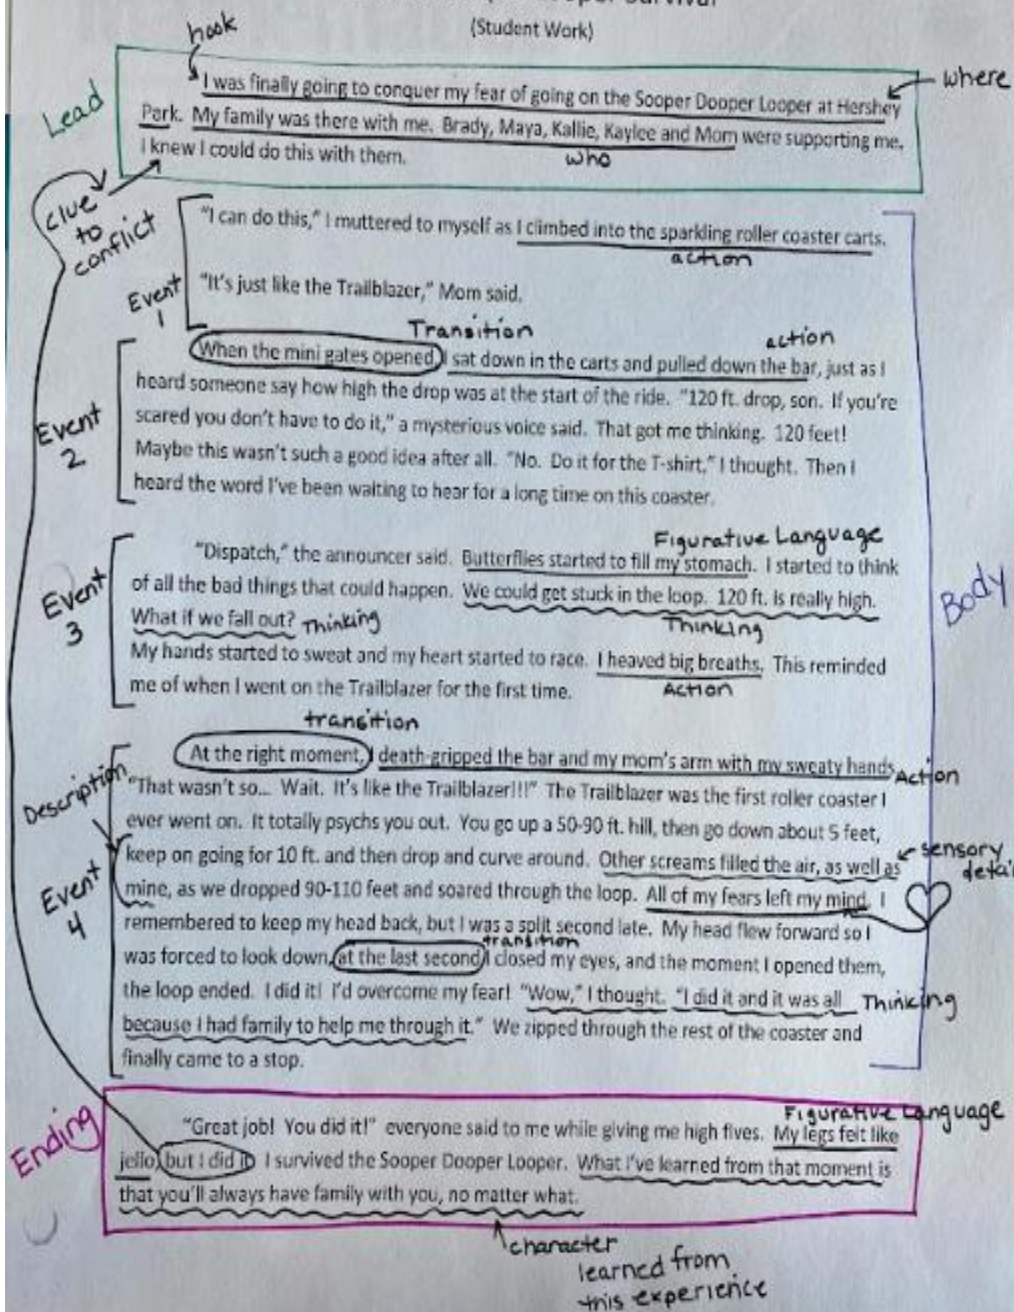 Survival
(Student Work)
hook
Lead
where
I was finally going to conquer my fear of going on the Sooper Dooper Looper at Hershey
Park. My family was there with me. Brady, Maya, Kallie, Kaylee and Mom were supporting me.
I knew I could do this with them.
who
clue
to
conflict
"I can do this," I muttered to myself as I climbed into the sparkling roller coaster carts.
action
Event
1
"It's just like the Trailblazer," Mom said.
Transition
action
When the mini gates opened I sat down in the carts and pulled down the bar, just as I
heard someone say how high the drop was at the start of the ride. "120 ft. drop, son. If you're
Event
2
scared you don't have to do it," a mysterious voice said. That got me thinking. 120 feet!
Maybe this wasn't such a good idea after all. "No. Do it for the T-shirt," I thought. Then I
heard the word I've been waiting to hear for a long time on this coaster.
Figurative Language
"Dispatch," the announcer said. Butterflies started to fill my stomach. I started to think
Event
3
of all the bad things that could happen. We could get stuck in the loop. 120 ft. is really high.
Body
What if we fall out? Thinking
Thinking
My hands started to sweat and my heart started to race. I heaved big breaths. This reminded
me of when I went on the Trailblazer for the first time.
Action
transition
At the right moment, I death-gripped the bar and my mom's arm with my sweaty hands.
Action
Description
"That wasn't so... Wait. It's like the Trailblazer!!!" The Trailblazer was the first roller coaster I
ever went on. It totally psychs you out. You go up a 50-90 ft. hill, then go down about 5 feet,
keep on going for 10 ft. and then drop and curve around. Other screams filled the air, as well as
sensory
detail
Event
4
mine, as we dropped 90-110 feet and soared through the loop. All of my fears left my mind. I
remembered to keep my head back, but I was a split second late. My head flew forward so I
transition
was forced to look down, at the last second I closed my eyes, and the moment I opened them,
the loop ended. I did it! I'd overcome my fear! "Wow," I thought. "I did it and it was all
Thinking
because I had family to help me through it." We zipped through the rest of the coaster and
finally came to a stop.
Ending
Figurative Language
"Great job! You did it!" everyone said to me while giving me high fives. My legs felt like
jello, but I did it! I survived the Sooper Dooper Looper. What I've learned from that moment is
that you'll always have family with you, no matter what.
character
learned from
this experience